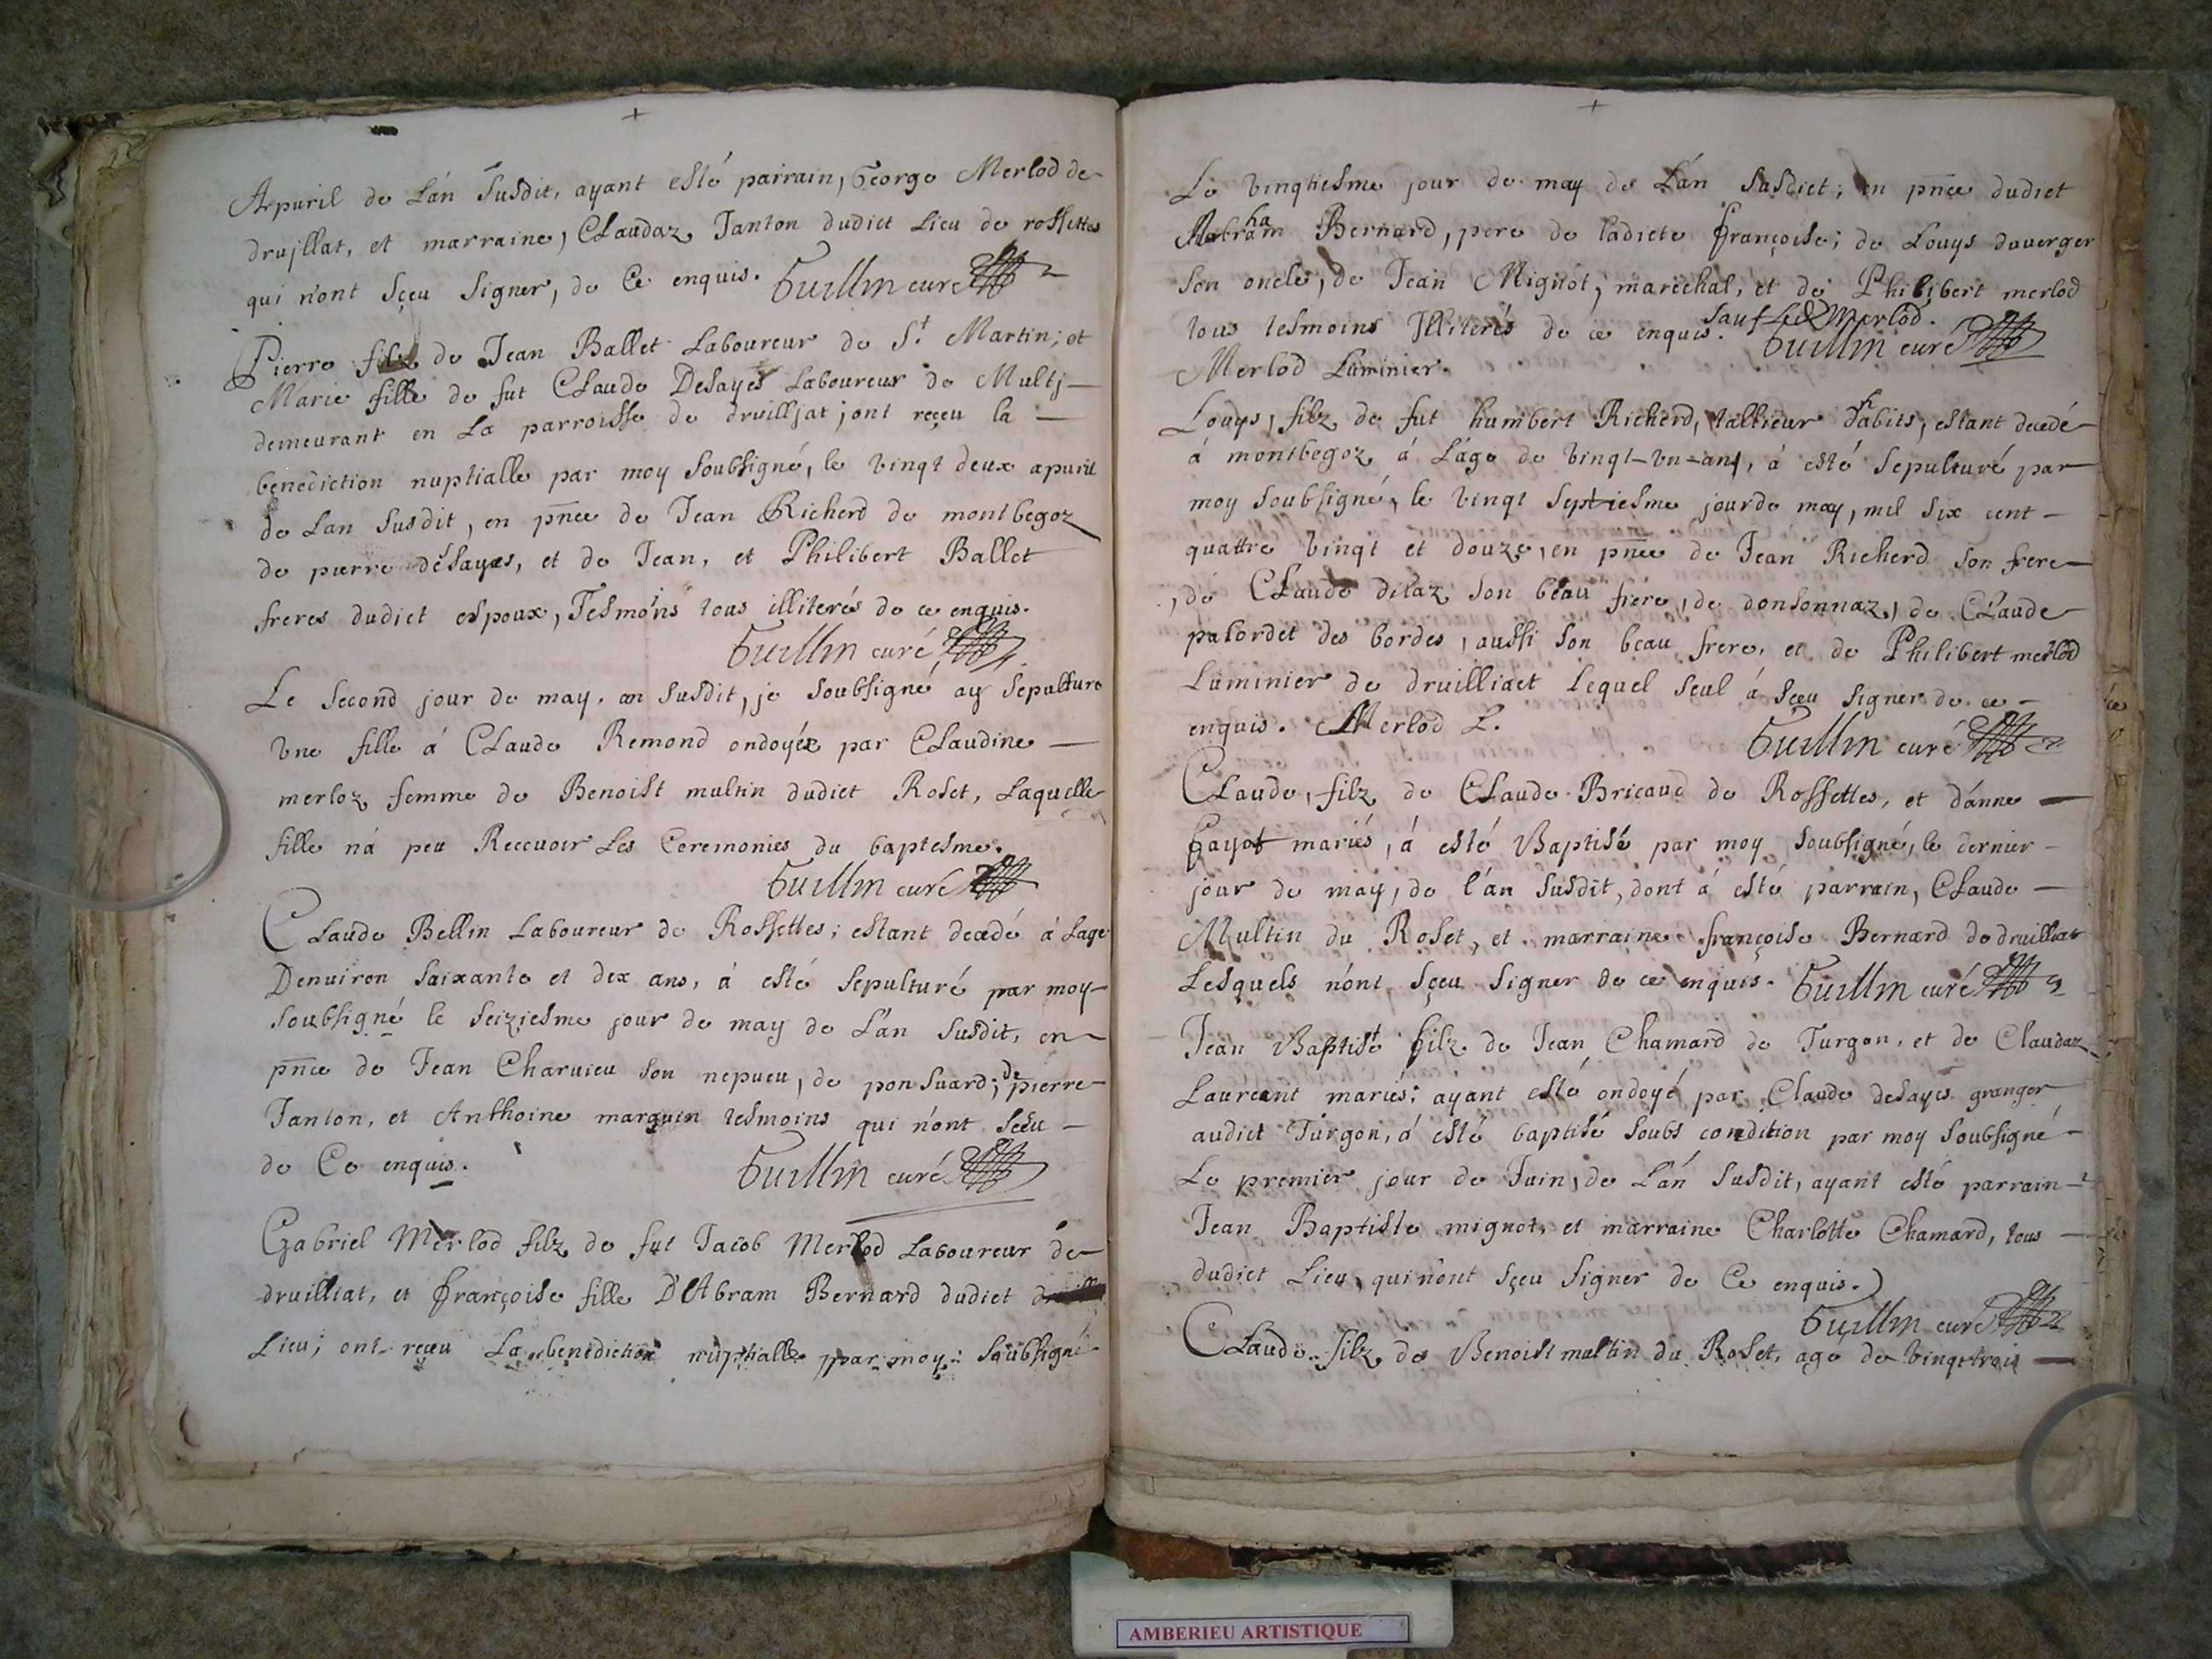 +
Apuril de L'án Susdit, ayant esté pairrain, George Merlod de
drujllat, et marraine, Claudaz Janton dudict Lieu de rossettes
qui n'ont sçeu signer, de Ce enquis. Guillin curé
Pierre filz de Jean Ballet Laboureur de St Martin; et
Marie fille de fut Claude Desayes Laboureur de Multj
demeurant en La parroisse de druilljat jont reçeu la
benediction nuptialle par moy soubsigné, le vingt deux apuril
de Lan susdit, en pnce de Jean Richerd de montbegoz
de pierre désayes, et de Jean, et Philibert Ballet
freres dudict espoux, Tesmoins tous illiterés de ce enquis.
Guillin curé
Le second jour de may, an susdit, je soubsigné ay sepulturé
vne fille á Claude Remond ondoyée par Claudine
merloz femme de Benoist multin dudict Roset, Laquelle
fille n'á peu Receuoir Les Ceremonies du baptesme.
Guillin curé
Claude Bellin Laboureur de Rossettes; estant decedé á Lage
Denuiron saixante et dex ans, á esté sepulturé par moy
soubsigné le seiziesme jour de may de L'an susdit, en
pnce de Jean Charuieu son nepueu, de pon suard; de pierre
Janton, et Anthoine marguin tesmoins qui n'ont sçeu
de Ce enquis. Guillin curé
Gabriel Merlod filz de fut Jacob Merlod Laboureur de
druilliat, et françoise fille D'Abram Bernard dudict
Lieu; ont reçeu La benediction nuptialle par moy soubsigné
+
Le vingtiesme jour de may de L'án susdict; en pnce dudict
Abraham Bernard, pere de ladicte françoise; de Louys duuerger
son oncle, de Jean Mignot, maréchal, et de Philibert merlod
tous tesmoins Illiterés de ce enquis. sauf led Merlod.
Merlod Luminier. Guillin curé
Louys, filz de fut humbert Richerd, tallieur d'habits, estant decedé
á montbegoz á L'áge de vingt-vn-ans, á esté sepulturé par
moy soubsigné, le vingt septiesme jour de may, mil six cent
quattre vingt et douze, en pnce de Jean Richerd son frere
, de Claude dilaz son beau frere, de donsonnaz, de Claude
palordet des bordes, aussi son beau frere, et de Philibert merlod
Luminier de druilliact lequel seul á sçeu signer de ce
enquis. Merlod L. Guillin curé
Claude, filz de Claude Bricaud de Rossettes, et d'ánne
Gayot mariés, á esté Baptisé par moy soubsigné, le dernier
jour de may, de l'án susdit, dont á esté parrain, Claude
Multin du Roset, et marraine françoise Bernard de druilliat
Lesquels n'ónt sçeu signer de ce enquis. Guillin curé
Jean Baptist filz de Jean Chamard de Turgon, et de Claudaz
Laureant mariés; ayant esté ondoyé par Claude desayes granger
audict Turgon, á esté baptisé soubs condition par moy soubsigné
Le premier jour de Juin, de L'án susdit, ayant esté parrain
Jean Baptiste mignot, et marraine Charlotte Chamard, tous
dudict Lieu, qui n'ont sçeu signer de Ce enquis.
Guillin curé
Claude filz de Benoist multin du Roset, age de vingt trois
AMBERIEU ARTISTIQUE